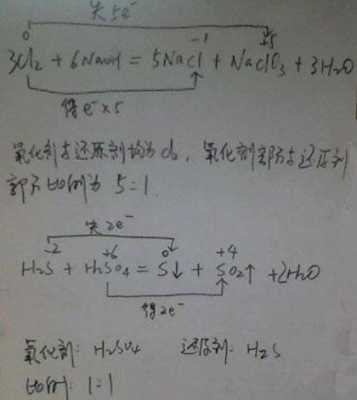 失5e⁻
0 -1 +5
3Cl₂ + 6NaOH = 5NaCl + NaClO₃ + 3H₂O
得e⁻×5
氧化剂与还原剂均为Cl₂，氧化剂部分与还原剂
部分比例为 5:1
失2e⁻
-2 +6 0 +4
H₂S + H₂SO₄ = S↓ + SO₂↑ + 2H₂O
得2e⁻
氧化剂: H₂SO₄ 还原剂: H₂S
比例: 1:1